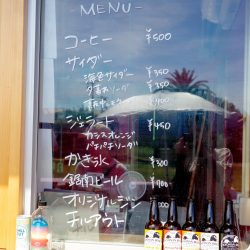 - MENU -
コーヒー ¥500
サイダー
海色サイダー ¥350
夕暮れソーダ ¥350
¥400
ジェラート ¥450
カシスオレンジ
パチパチソーダ
かき氷 ¥300
鋸南ビール ¥900
オリジナルジン
チルアウト